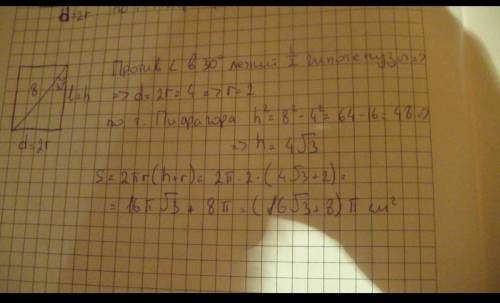 d=2r
Против ∠ в 30° лежит 1/2 гипотенузы =>
8
l=h
=> d=2r=4 => r=2
по т. Пифагора h²=8²-4²=64-16=48 =>
d=2r
=> h=4√3
S=2πr(h+r)=2π·2·(4√3+2)=
=16π√3+8π=(16√3+8)π см²